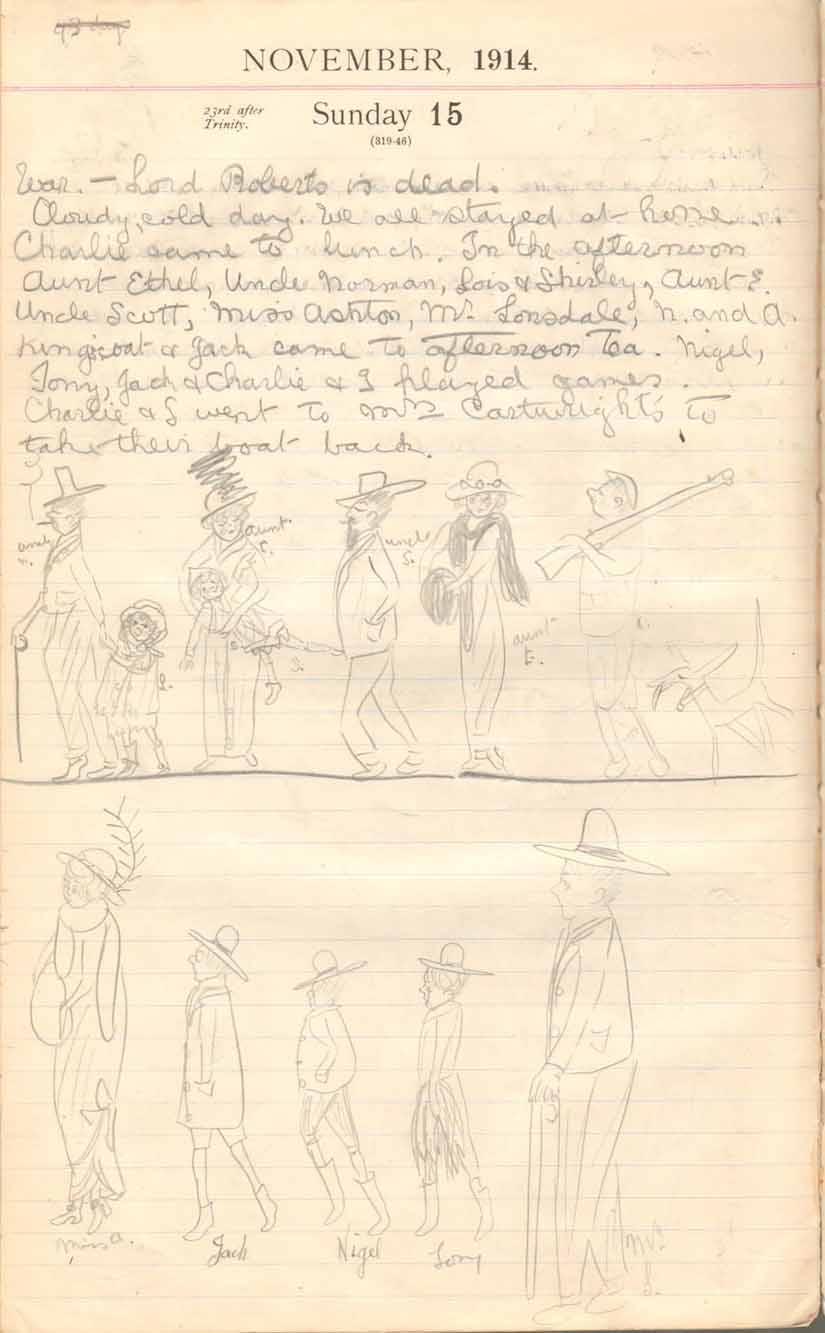 NOVEMBER, 1914.
23rd after
Trinity.
Sunday 15
(319-46)
War. – Lord Roberts is dead.
Cloudy, cold day. We all stayed at home.
Charlie came to lunch. In the afternoon
Aunt Ethel, Uncle Norman, Lois & Shirley, Aunt E.
Uncle Scott, Miss Ashton, Mr. Lonsdale, N. and A.
Kingscoat & Jack came to afternoon Tea. Nigel,
Tony, Jack & Charlie & I played games.
Charlie & I went to Mrs Cartwright's to
take their boat back.
uncle
n.
aunt
E.
uncle
S.
aunt
E.
L.
S.
Miss A.
Jack
Nigel
Tony
Mr.